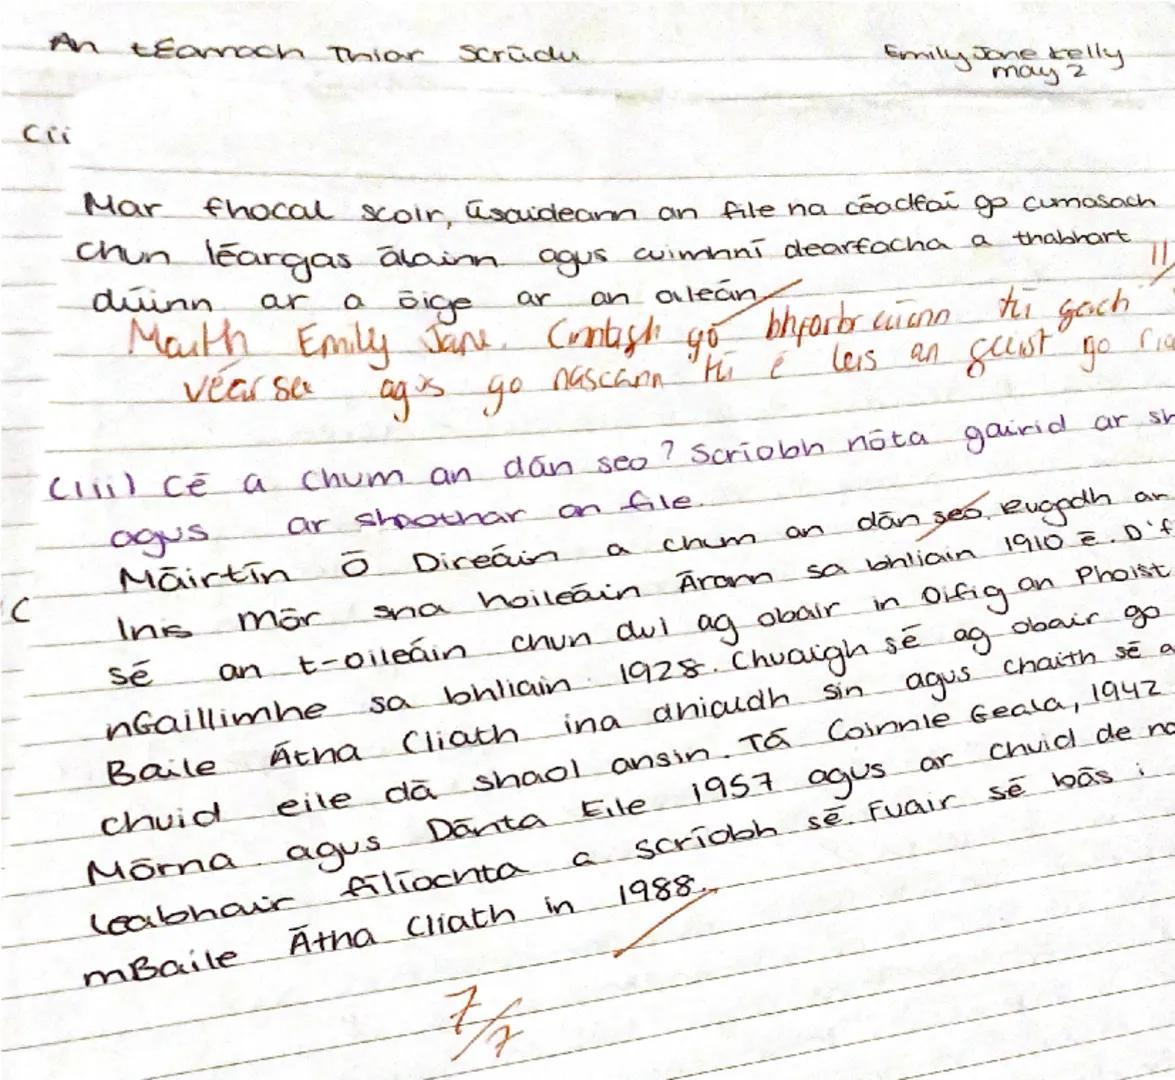 An tEarrach Thiar Scrūdu
Emily Jane Kelly
may 2
Cii
Mar fhocal scoir, ūsaideann an file na cēadfaī go cumasach
chun lēargas ālainn agus cuimhnī dearfacha a thabhart
dūinn ar a ōige ar an oileān
11
Maith Emily Jane. go tú gach
véarsa agus go nascann tú é leis an gceist go
(iii) Cē a chum an dān seo? Scrīobh nōta gairid ar sh
agus ar shaothar an file.
Māirtīn Ō Direāin a chum an dān seo. Rugadh ar
C
Inis Mōr sna hoileāin Ārann sa bhliain 1910 ē. D'f
sē an t-oileāin chun dul ag obair in Oifig an Phoist
nGaillimhe sa bhliain 1928. Chuaigh sē ag obair go
Baile Ātha Cliath ina dhiaidh sin agus chaith sē a
chuid eile dā shaol ansin. Tā Coinnle Geala, 1942
Mōrna agus Dānta Eile 1957 agus ar chuid de na
leabhair filīochta a scrīobh sē. Fuair sē bās i
mBaile Ātha Cliath in 1988.
7/7